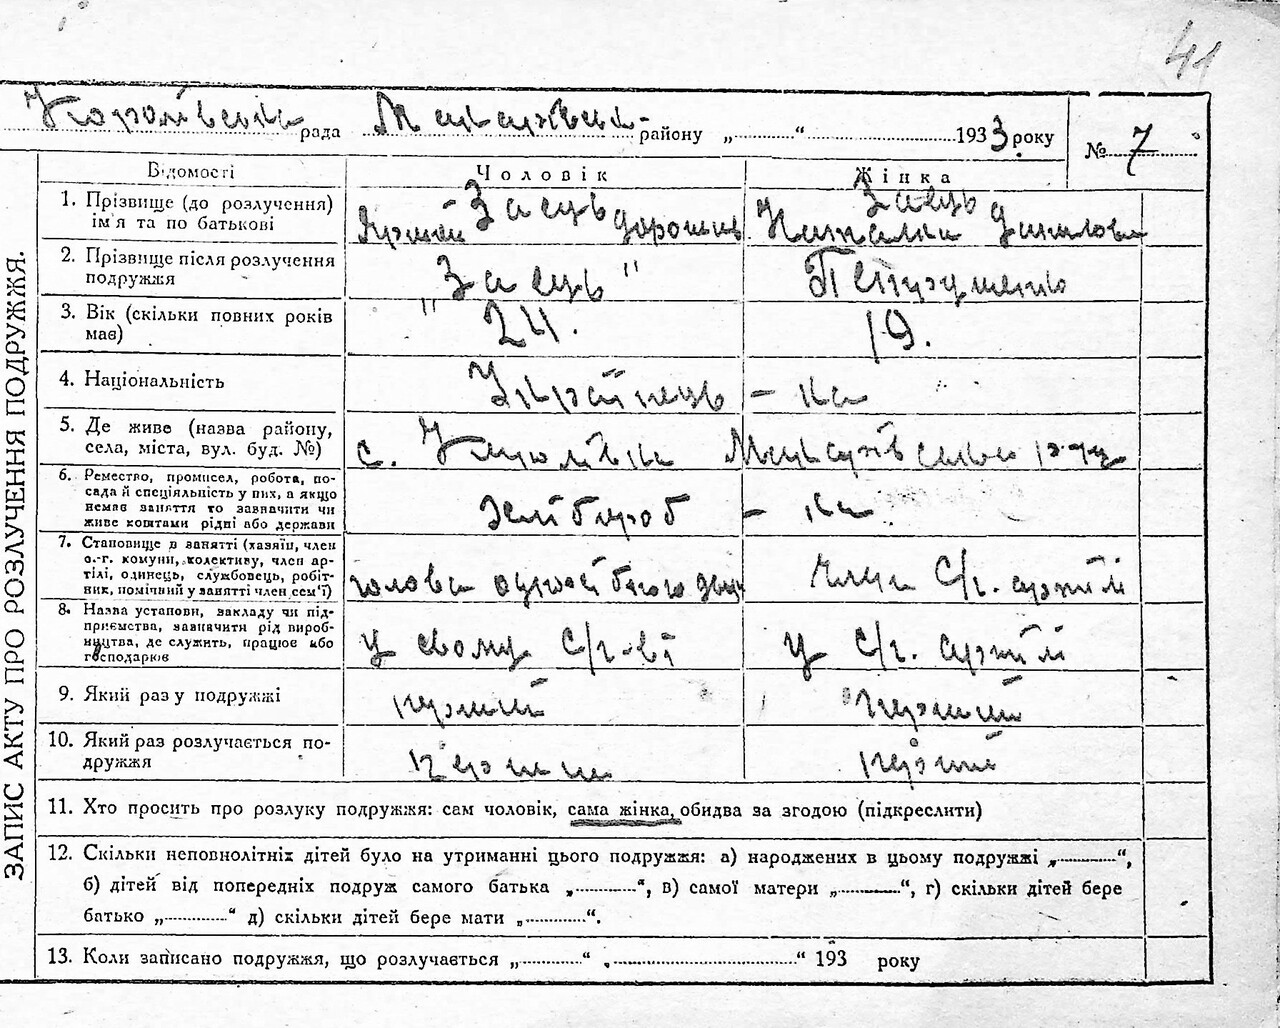 41
Королівська рада Макарівськ. району „ “ 1933 року № 7
ЗАПИС АКТУ ПРО РОЗЛУЧЕННЯ ПОДРУЖЖЯ.
Відомості Чоловік Жінка
1. Прізвище (до розлучення) Заєць Заєць
ім'я та по батькові Данилова
2. Прізвище після розлучення „Заєць“ Петрушенко
подружжя
3. Вік (скільки повних років 24. 19.
має)
4. Національність Українець – ка
5. Де живе (назва району, с. Королівка Макарівського р-ну
села, міста, вул. буд. №)
6. Ремество, промисел, робота, по-
сада й спеціяльність у них, а якщо
немає заняття то зазначити чи хлібороб – ка
живе коштами рідні або держави
7. Становище в занятті (хазяїн, член
с.-г. комуни, колективу, член ар-
тілі, одинець, службовець, робіт- голова член с/г. артілі
ник, помічний у занятті член сем'ї)
8. Назва установи, закладу чи під-
приємства, зазначити рід вироб-
ництва, де служить, працює або у свому с/г-ві у с/г. артілі
господарює
9. Який раз у подружжі перший перший
10. Який раз розлучається по- перший перший
дружжя
11. Хто просить про розлуку подружжя: сам чоловік, сама жінка, обидва за згодою (підкреслити)
12. Скільки неповнолітніх дітей було на утриманні цього подружжя: а) народжених в цьому подружжі „ “,
б) дітей від попередніх подруж самого батька „ “, в) самої матери „ “, г) скільки дітей бере
батько „ “ д) скільки дітей бере мати „ “.
13. Коли записано подружжя, що розлучається „ “ , “ 193 року